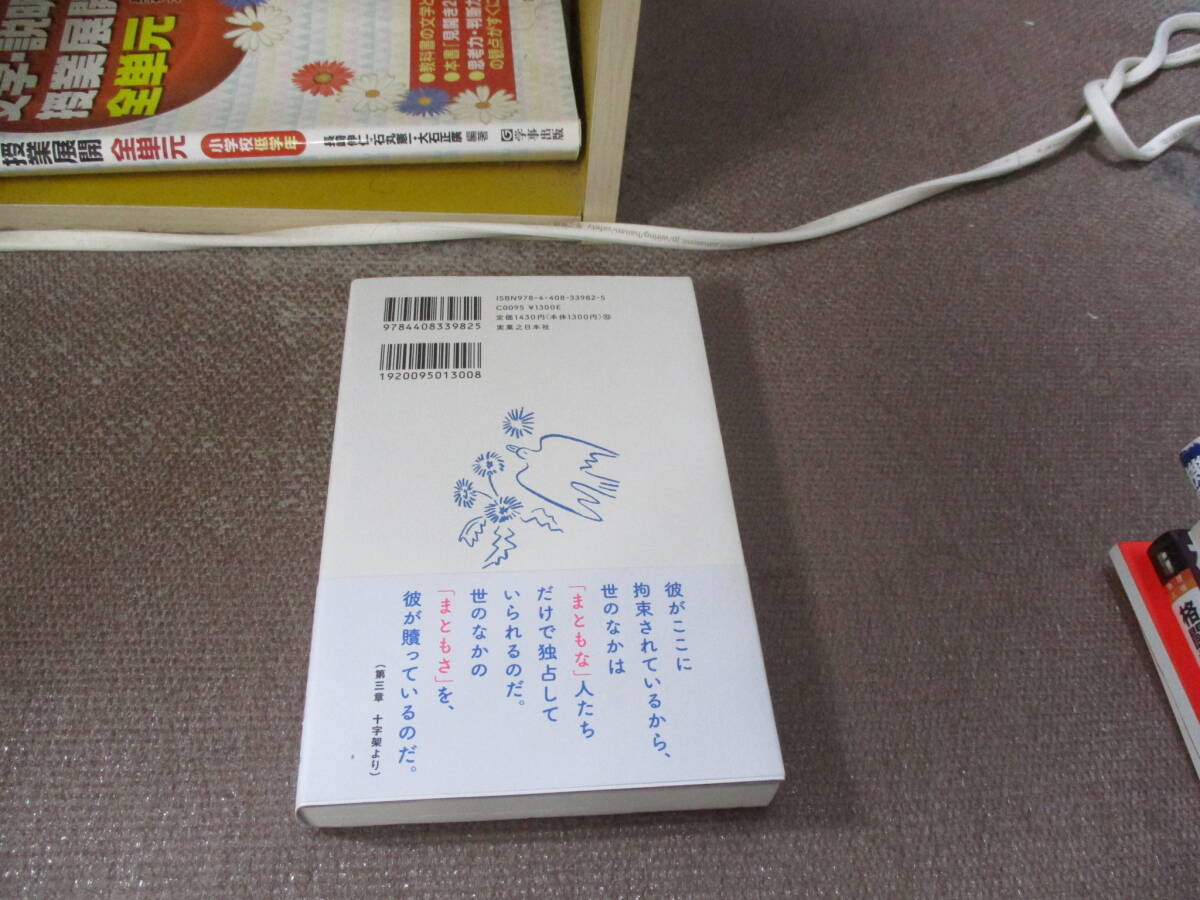 文字・説明
授業展開
全単元
●教科書の文字と
●本書「見開き2
●思考力・判断力
の観点がすぐに
授業展開 全単元 小学校低学年 石丸憲一・大石正廣 編著 学事出版
ISBN978-4-408-33982-5
C0095 ¥1300E
定価1430円(本体1300円)⑩
実業之日本社
9784408339825
1920095013008
彼がここに
拘束されているから、
世のなかは
「まともな」人たち
だけで独占して
いられるのだ。
世のなかの
「まともさ」を、
彼が贖っているのだ。
(第三章 十字架より)
格